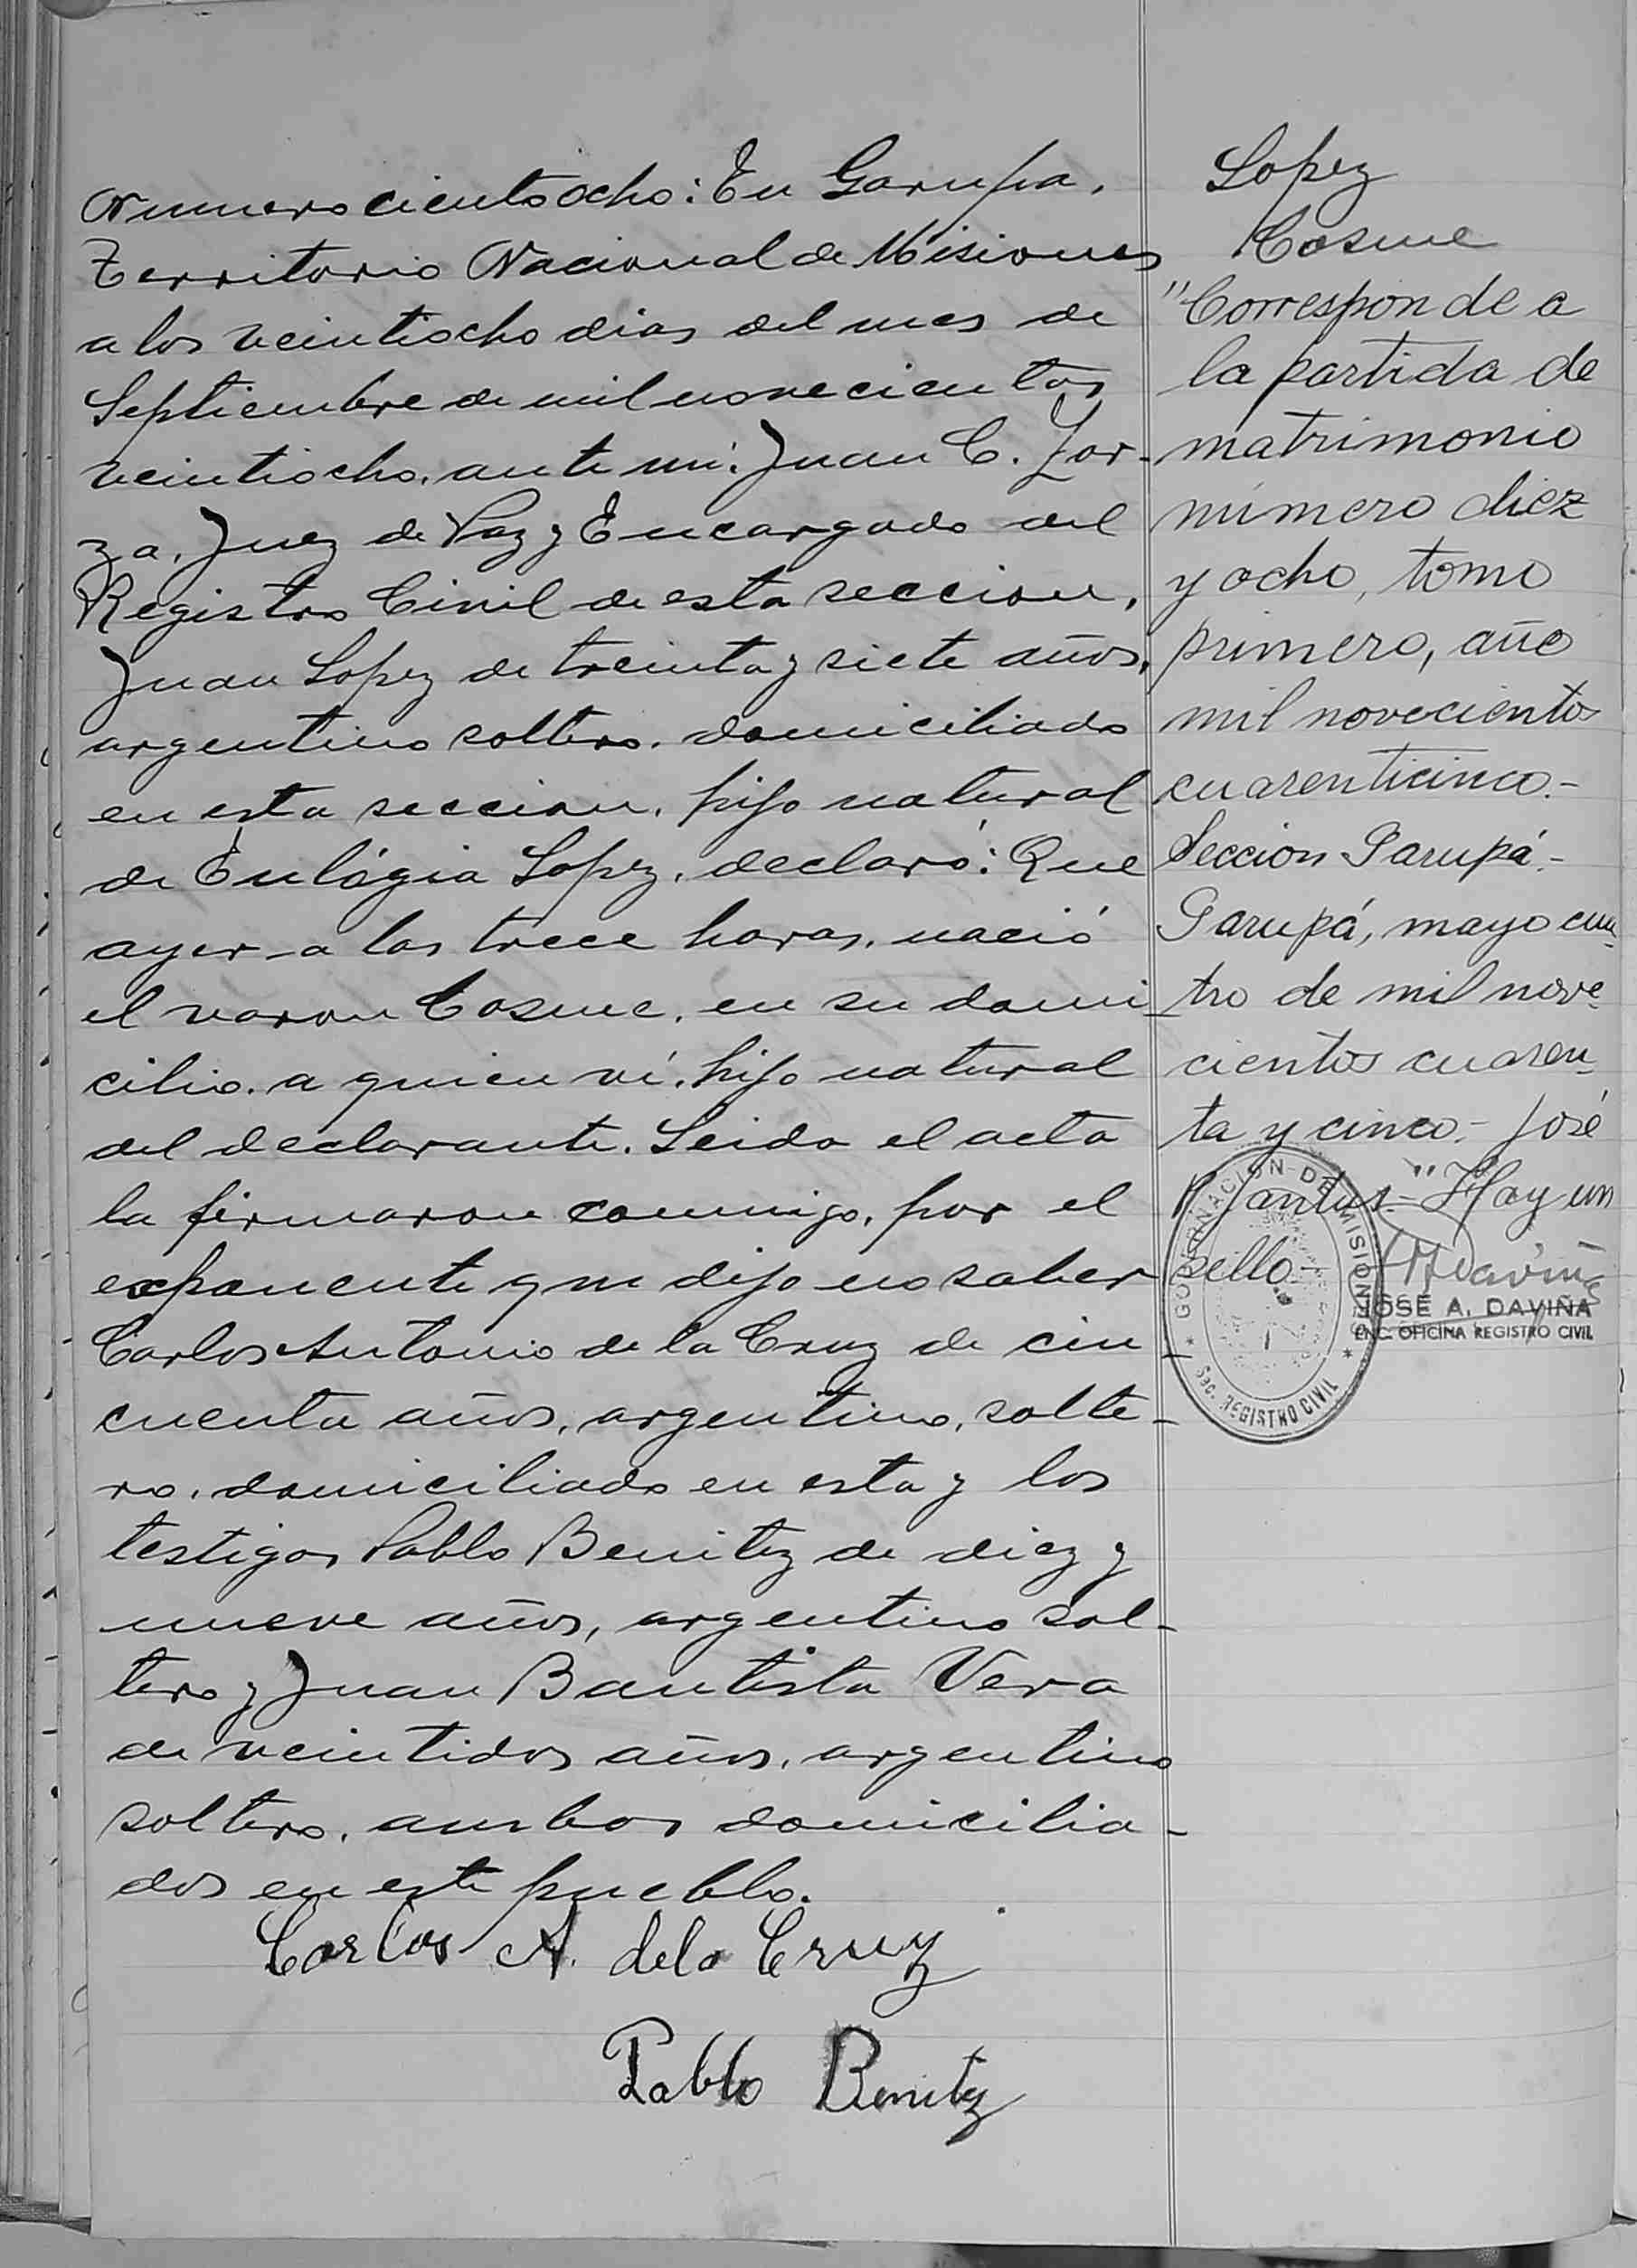 Numero ciento ocho: En Garupa,
Territorio Nacional de Misiones
a los veintiocho dias del mes de
Septiembre de mil novecientos
veintiocho, ante mi: Juan C. Zor-
za, Juez de Paz y Encargado del
Registro Civil de esta seccion,
Juan Lopez de treinta y siete años,
argentino soltero, domiciliado
en esta seccion, hijo natural
de Eulógia Lopez, declaró: Que
ayer a las trece horas, nació
el varon Cosme, en su domi-
cilio, a quien ví, hijo natural
del declarante. Leida el acta
la firmaron conmigo, por el
exponente que dijo no saber
Carlos Antonio de la Cruz de cin-
cuenta años, argentino, solte-
ro, domiciliado en esta y los
testigos Pablo Benitez de diez y
nueve años, argentino sol-
tero y Juan Bautista Vera
de veintidos años, argentino
soltero, ambos domicilia-
dos en este pueblo.
Carlos A. dela Cruz
Pablo Benitez
Lopez
Cosme
"Corresponde a
la partida de
matrimonio
número diez
y ocho, tomo
primero, año
mil novecientos
cuarenticinco.-
Seccion Garupá.-
Garupá, mayo cua-
tro de mil nove-
cientos cuaren-
ta y cinco.- José
Hay un
sello
JOSE A. DAVIÑA
ENC. OFICINA REGISTRO CIVIL
GOBERNACION DE MISIONES
Sec. REGISTRO CIVIL